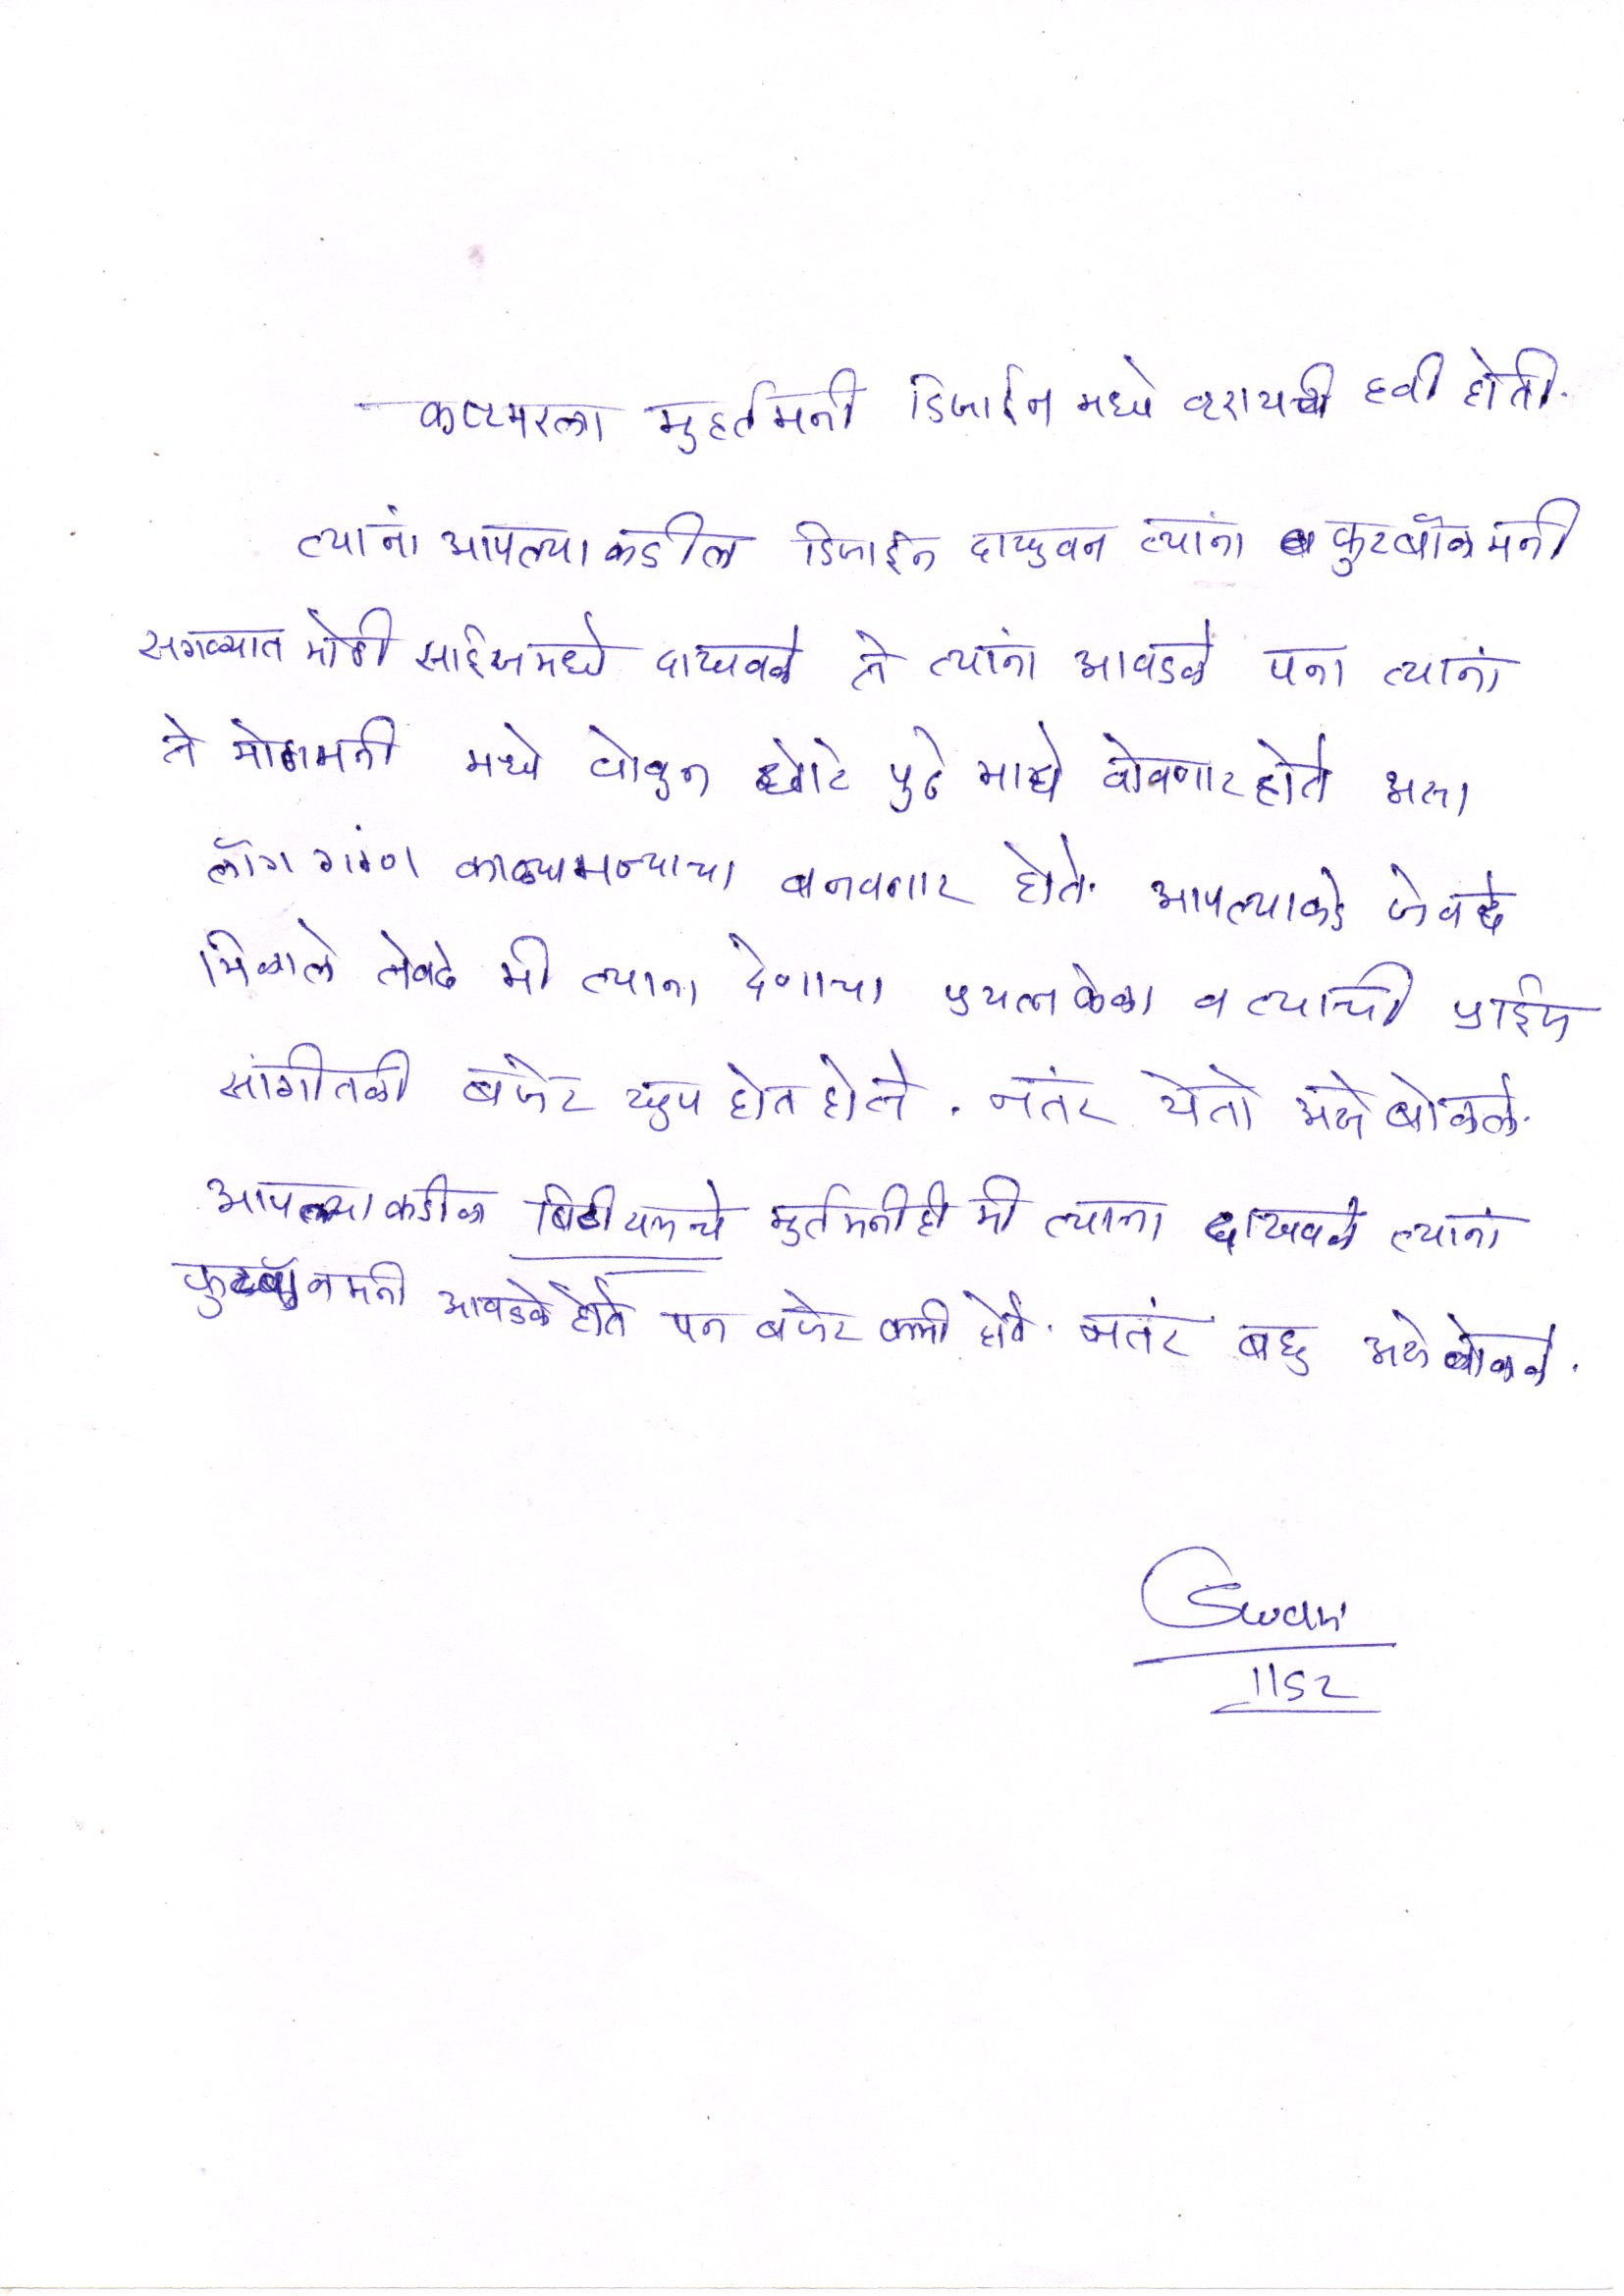 कष्टमरला मुहर्तमनी डिजाईन मध्ये व्हरायटी हवी होती.
त्यांना आपल्याकडील डिजाईन दाखुवन त्यांना फुटबॉलमनी
सगळ्यात मोठी साईजमध्ये दाखवले ते त्यांना आवडले पन त्यानां
ते मोठामनी मध्ये वोवुन छोटे पुढे मागे वोवणार होते असा
लॉग गठंण काळ्यामन्याचा बनवनार होते. आपल्याकडे जेवढे
मिळाले तेवढे मी त्याना देणाचा प्रयत्न केला व त्याची प्राईस
सांगीतली बजेट खुप होत होते. नतंर येतो असे बोलले.
आपल्याकडील बिटीयलचे मुर्तमनीही मी त्याना दाखवले त्यानां
फुटबॉलमनी आवडले होते पन बजेट कमी होते. नतंर बघु असे बोलले.
Swami
1152